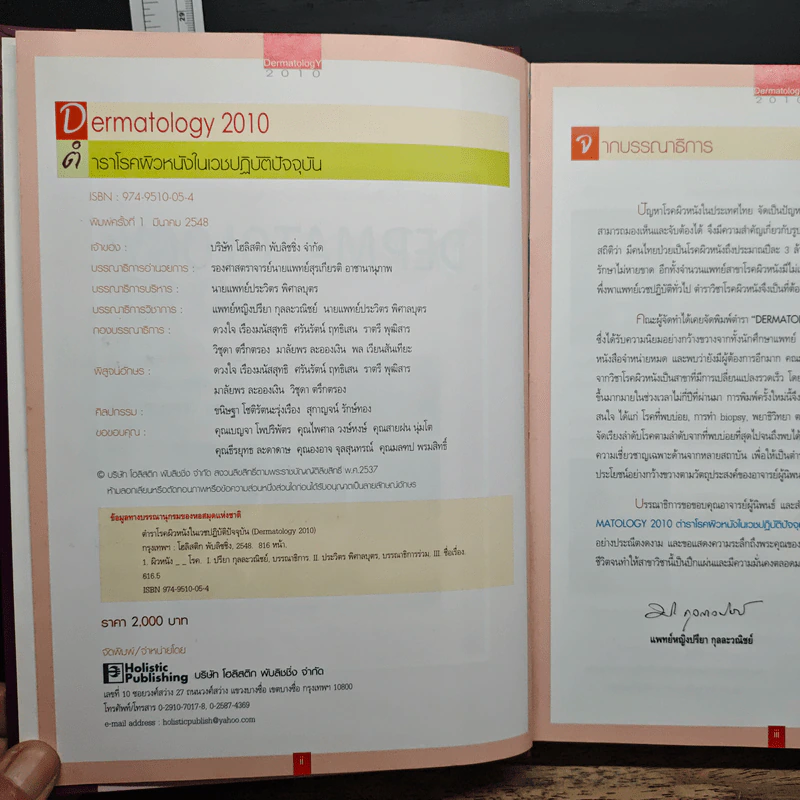 29
DermatologY
2010
Dermatology 2010
ตำราโรคผิวหนังในเวชปฏิบัติปัจจุบัน
ISBN : 974-9510-05-4
พิมพ์ครั้งที่ 1 มีนาคม 2548
เจ้าของ : บริษัท โฮลิสติก พับลิชชิ่ง จำกัด
บรรณาธิการอำนวยการ : รองศาสตราจารย์นายแพทย์สุรเกียรติ อาชานานุภาพ
บรรณาธิการบริหาร : นายแพทย์ประวิตร พิศาลบุตร
บรรณาธิการวิชาการ : แพทย์หญิงปรียา กุลละวณิชย์ นายแพทย์ประวิตร พิศาลบุตร
กองบรรณาธิการ : ดวงใจ เรืองมนัสสุทธิ ศรันรัตน์ ฤทธิเสน ราตรี พุฒิสาร
วิชุดา ตรึกตรอง มาลัยพร ละอองเงิน พล เวียนสันเทียะ
พิสูจน์อักษร : ดวงใจ เรืองมนัสสุทธิ ศรันรัตน์ ฤทธิเสน ราตรี พุฒิสาร
มาลัยพร ละอองเงิน วิชุดา ตรึกตรอง
ศิลปกรรม : ขนิษฐา โชติรัตนะรุ่งเรือง สุกาญจน์ รักษ์ทอง
ขอขอบคุณ : คุณเบญจา โพปริพัตร คุณไพศาล วงษ์หงษ์ คุณสายฝน นุ่มโต
คุณธีรยุทธ ละตาดาษ คุณองอาจ จุลสุนทรณ์ คุณมลฑป พรมสิทธิ์
© บริษัท โฮลิสติก พับลิชชิ่ง จำกัด สงวนลิขสิทธิ์ตามพระราชบัญญัติลิขสิทธิ์ พ.ศ.2537
ห้ามลอกเลียนหรือตัดทอนภาพหรือข้อความส่วนหนึ่งส่วนใดก่อนได้รับอนุญาตเป็นลายลักษณ์อักษร
ข้อมูลทางบรรณานุกรมของหอสมุดแห่งชาติ
ตำราโรคผิวหนังในเวชปฏิบัติปัจจุบัน (Dermatology 2010)
กรุงเทพฯ : โฮลิสติก พับลิชชิ่ง, 2548. 816 หน้า.
1. ผิวหนัง _ _ โรค. I. ปรียา กุลละวณิชย์, บรรณาธิการ. II. ประวิตร พิศาลบุตร, บรรณาธิการร่วม. III. ชื่อเรื่อง.
616.5
ISBN 974-9510-05-4
ราคา 2,000 บาท
จัดพิมพ์/จำหน่ายโดย
Holistic Publishing บริษัท โฮลิสติก พับลิชชิ่ง จำกัด
เลขที่ 10 ซอยวงศ์สว่าง 27 ถนนวงศ์สว่าง แขวงบางซื่อ เขตบางซื่อ กรุงเทพฯ 10800
โทรศัพท์/โทรสาร 0-2910-7017-8, 0-2587-4369
e-mail address : holisticpublish@yahoo.com
ii
Dermatology
2010
จากบรรณาธิการ
ปัญหาโรคผิวหนังในประเทศไทย จัดเป็นปัญหา
สามารถมองเห็นและจับต้องได้ จึงมีความสำคัญเกี่ยวกับรูป
สถิติว่า มีคนไทยป่วยเป็นโรคผิวหนังถึงประมาณปีละ 3 ล้
รักษาไม่หายขาด อีกทั้งจำนวนแพทย์สาขาโรคผิวหนังมีไม่เ
พึ่งพาแพทย์เวชปฏิบัติทั่วไป ตำราวิชาโรคผิวหนังจึงเป็นที่ต้อ
คณะผู้จัดทำได้เคยจัดพิมพ์ตำรา "DERMATOL
ซึ่งได้รับความนิยมอย่างกว้างขวางจากทั้งนักศึกษาแพทย์
หนังสือจำหน่ายหมด และพบว่ายังมีผู้ต้องการอีกมาก คณ
จากวิชาโรคผิวหนังเป็นสาขาที่มีการเปลี่ยนแปลงรวดเร็ว โดย
ขึ้นมากมายในช่วงเวลาไม่กี่ปีที่ผ่านมา การพิมพ์ครั้งใหม่นี้จึง
สนใจ ได้แก่ โรคที่พบบ่อย, การทำ biopsy, พยาธิวิทยา ต
จัดเรียงลำดับโรคตามลำดับจากที่พบบ่อยที่สุดไปจนถึงพบได้
ความเชี่ยวชาญเฉพาะด้านจากหลายสถาบัน เพื่อให้เป็นตำ
ประโยชน์อย่างกว้างขวางตามวัตถุประสงค์ของอาจารย์ผู้นิพนธ์
บรรณาธิการขอขอบคุณอาจารย์ผู้นิพนธ์ และส
MATOLOGY 2010 ตำราโรคผิวหนังในเวชปฏิบัติปัจจุ
อย่างประณีตงดงาม และขอแสดงความระลึกถึงพระคุณของ
ชีวิตจนทำให้สาขาวิชานี้เป็นปึกแผ่นและมีความมั่นคงตลอดม
แพทย์หญิงปรียา กุลละวณิชย์
iii